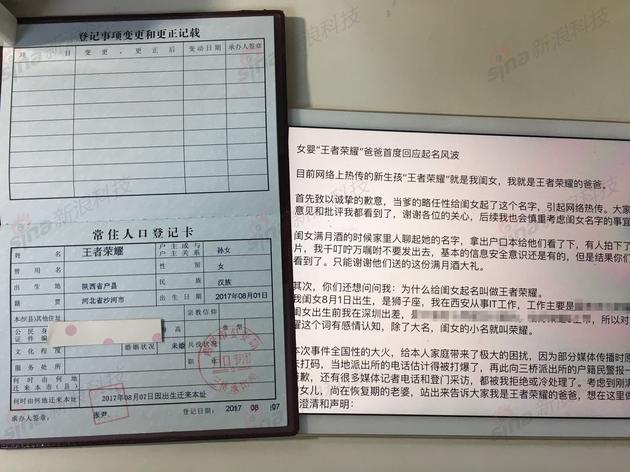 登记事项变更和更正记载
项 目 变更、更正后 变动日期 承办人签章
常住人口登记卡
姓名 王者荣耀 户主或与户主关系 孙女
曾用名 性别 女
出生地 陕西省户县 民族 汉族
籍贯 河北省沙河市 出生日期 2017年08月01日
本市(县)其他住址 宗教信仰
公民身份证件编号 身高
文化程度 婚姻状况 未婚 兵役状况
服务处所
何时由何地迁来本市(县)
何时由何地迁来本址 2017年08月07日因出生迁来本址
承办人签章 登记日期: 2017 08 07
女婴“王者荣耀”爸爸首度回应起名风波
目前网络上热传的新生孩“王者荣耀”就是我闺女，我就是王者荣耀的爸爸。
首先致以诚挚的歉意，当爹的略任性给闺女起了这个名字，引起网络热传。大家
意见和批评我都看到了，谢谢各位的关心，后续我也会慎重考虑闺女名字的事宜
闺女满月酒的时候家里人聊起她的名字，拿出户口本给他们看了下，有人拍了
片，我千叮咛万嘱咐不要发出去，基本的信息安全意识还是有的，但是结果你们
看到了。只能谢谢他们送的这份满月酒大礼。
其次，你们还想问问我：为什么给闺女起名叫做王者荣耀。
我闺女8月1日出生，是狮子座，我在西安从事IT工作，工作主要是
闺女出生前我在深圳出差， 所以对
耀这个词有感情认知，除了大名，闺女的小名就叫荣耀。
本次事件全国性的大火，给本人家庭带来了极大的困扰，因为部分媒体传播时原
未打码，当地派出所的电话估计得被打爆了，再此向三桥派出所的户籍民警报一
歉，还有很多媒体记者电话和登门采访，都被我拒绝或冷处理了。考虑到刚满
女儿，尚在恢复期的老婆，站出来告诉大家我是王者荣耀的爸爸，想在这里做
澄清和声明：
sina新浪科技